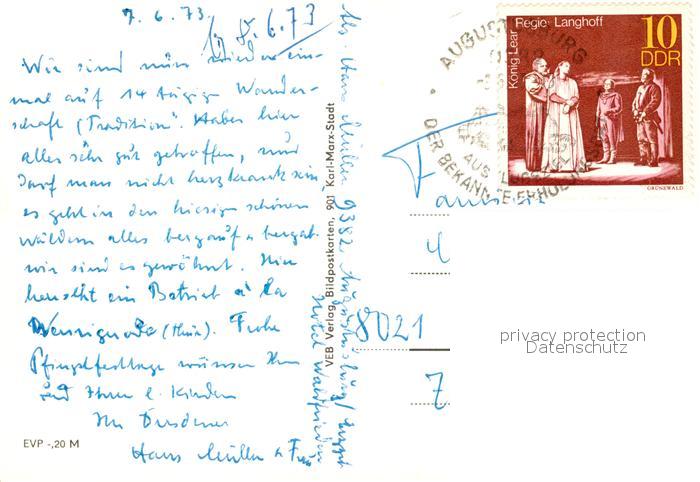 7.6.73
8.6.73
Wir sind nun wieder ein-
mal auf 14 tägiger Wander-
schaft (Tradition". Haben hier
alles sehr gut getroffen, nur
darf man nicht herzkrank sein
es geht in den hiesigen schönen
Wäldern alles bergauf u bergab.
wir sind es gewöhnt. Hier
herrscht ein Betrieb a la
Wernigerode (Harz). Frohe
Pfingstfeiertage wünschen Ihnen
und Ihren l. Kindern
Ihr Dresdener
Hans Müller u Frau
EVP -,20 M
Abs. Hans Müller 9382 Augustusburg/Erzgb
Hotel Waldfrieden
VEB Verlag, Bildpostkarten, 901 Karl-Marx-Stadt
König Lear Regie: Langhoff
10
DDR
GRÜNEWALD
AUGUSTUSBURG
DER BEKANNTE ERHOLUNGS
AUS
4
8021
7
privacy protection
Datenschutz